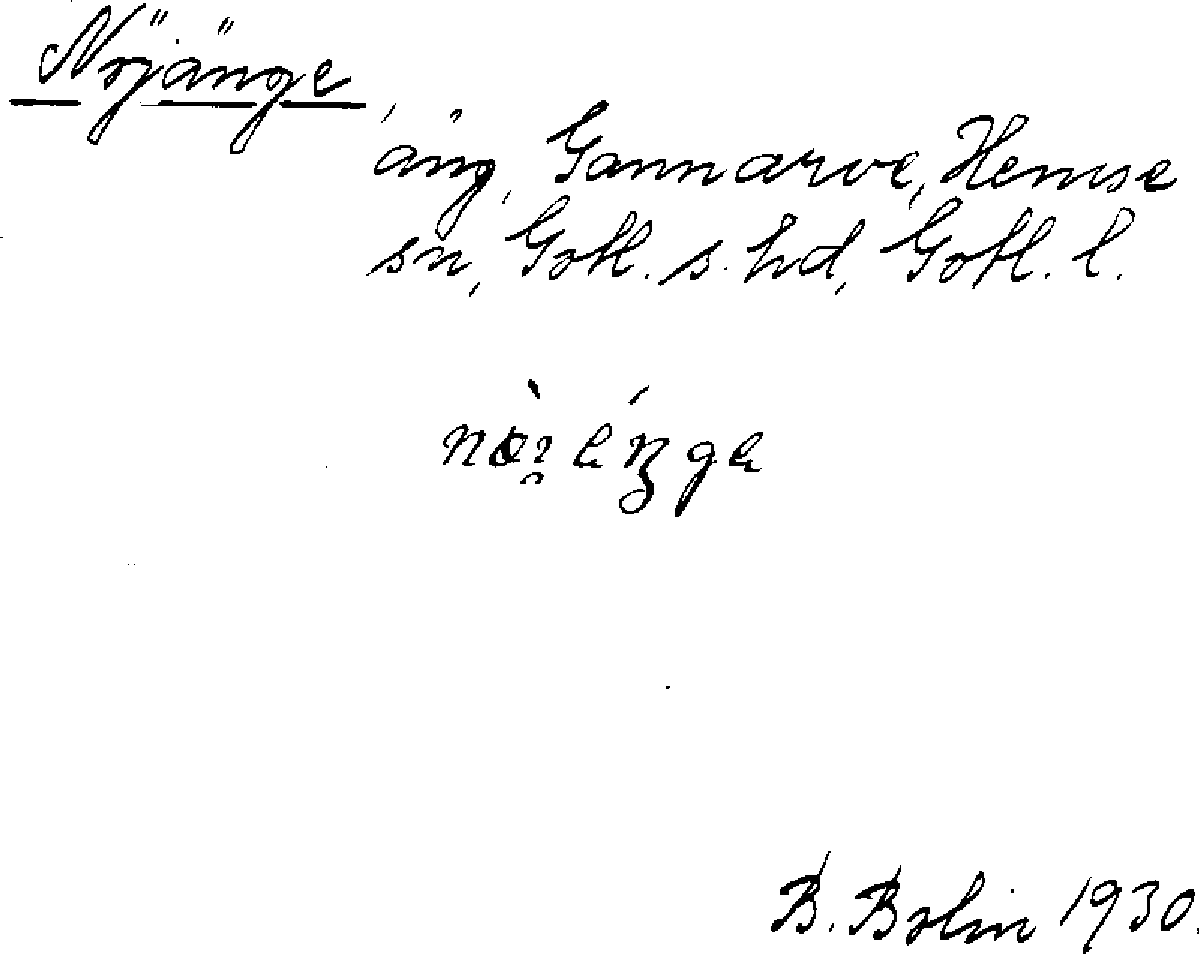 Nöjänge
äng, Gannarve, Hemse
sn, Gotl. s. hd, Gotl. l.
B. Bolin 1930.